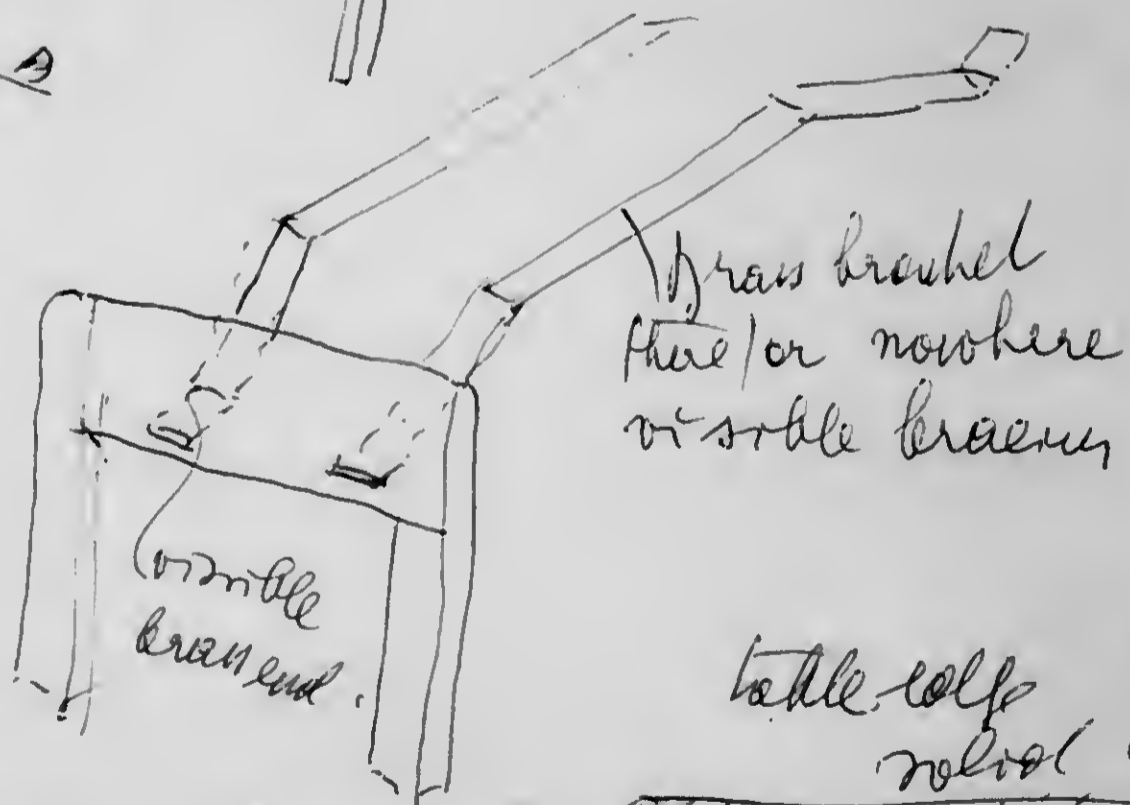 A
Brass bracket
there/or nowhere
visible bracing
visible
brass end.
table edge
solid